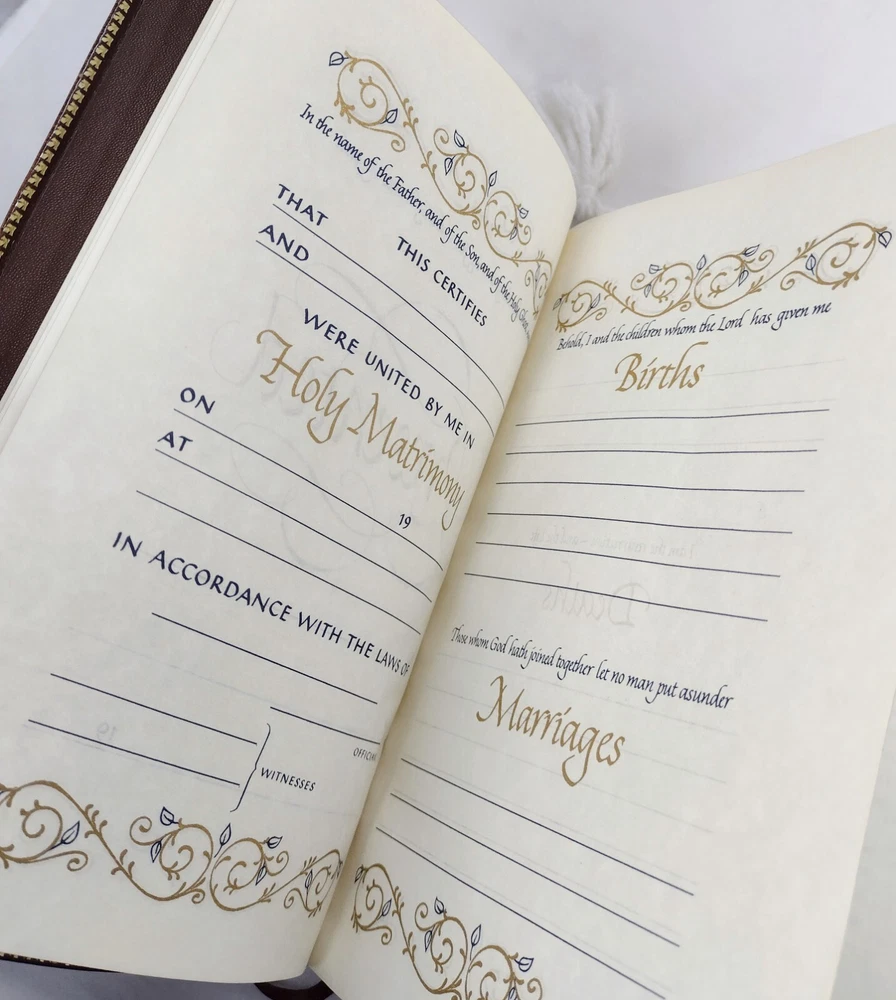 In the name of the Father, and of the Son, and of the Holy Ghost,
THIS CERTIFIES
THAT
AND
WERE UNITED BY ME IN
Holy Matrimony
ON
19
AT
IN ACCORDANCE WITH THE LAWS OF
WITNESSES
Behold, I and the children whom the Lord has given me
Births
Those whom God hath joined together let no man put asunder
Marriages